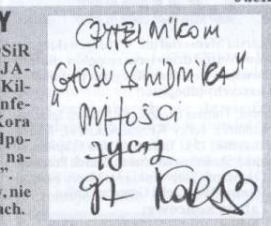 Y
OSiR
JA-
Kil-
nfe-
Kora
dpo-
na-
”.
, nie
ach.
CZYTELNIKOM
„GŁOSU ŚWIDNIKA”
MIŁOŚCI
życzy
Kora